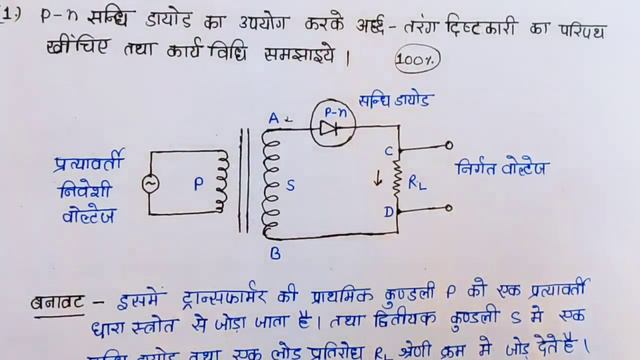 1.) P-n सन्धि डायोड का उपयोग करके अर्द्ध-तरंग दिष्टकारी का परिपथ
खींचिए तथा कार्य विधि समझाइये।
100%
सन्धि डायोड
P-n
A
प्रत्यावर्ती
निवेशी
वोल्टेज
P
S
C
RL
D
निर्गत वोल्टेज
B
बनावट - इसमें ट्रान्सफार्मर की प्राथमिक कुण्डली P को एक प्रत्यावर्ती
धारा स्त्रोत से जोड़ा जाता है। तथा द्वितीयक कुण्डली S मे एक
सन्धि डायोड तथा एक लोड प्रतिरोध RL श्रेणी क्रम मे जोड़ देते है।